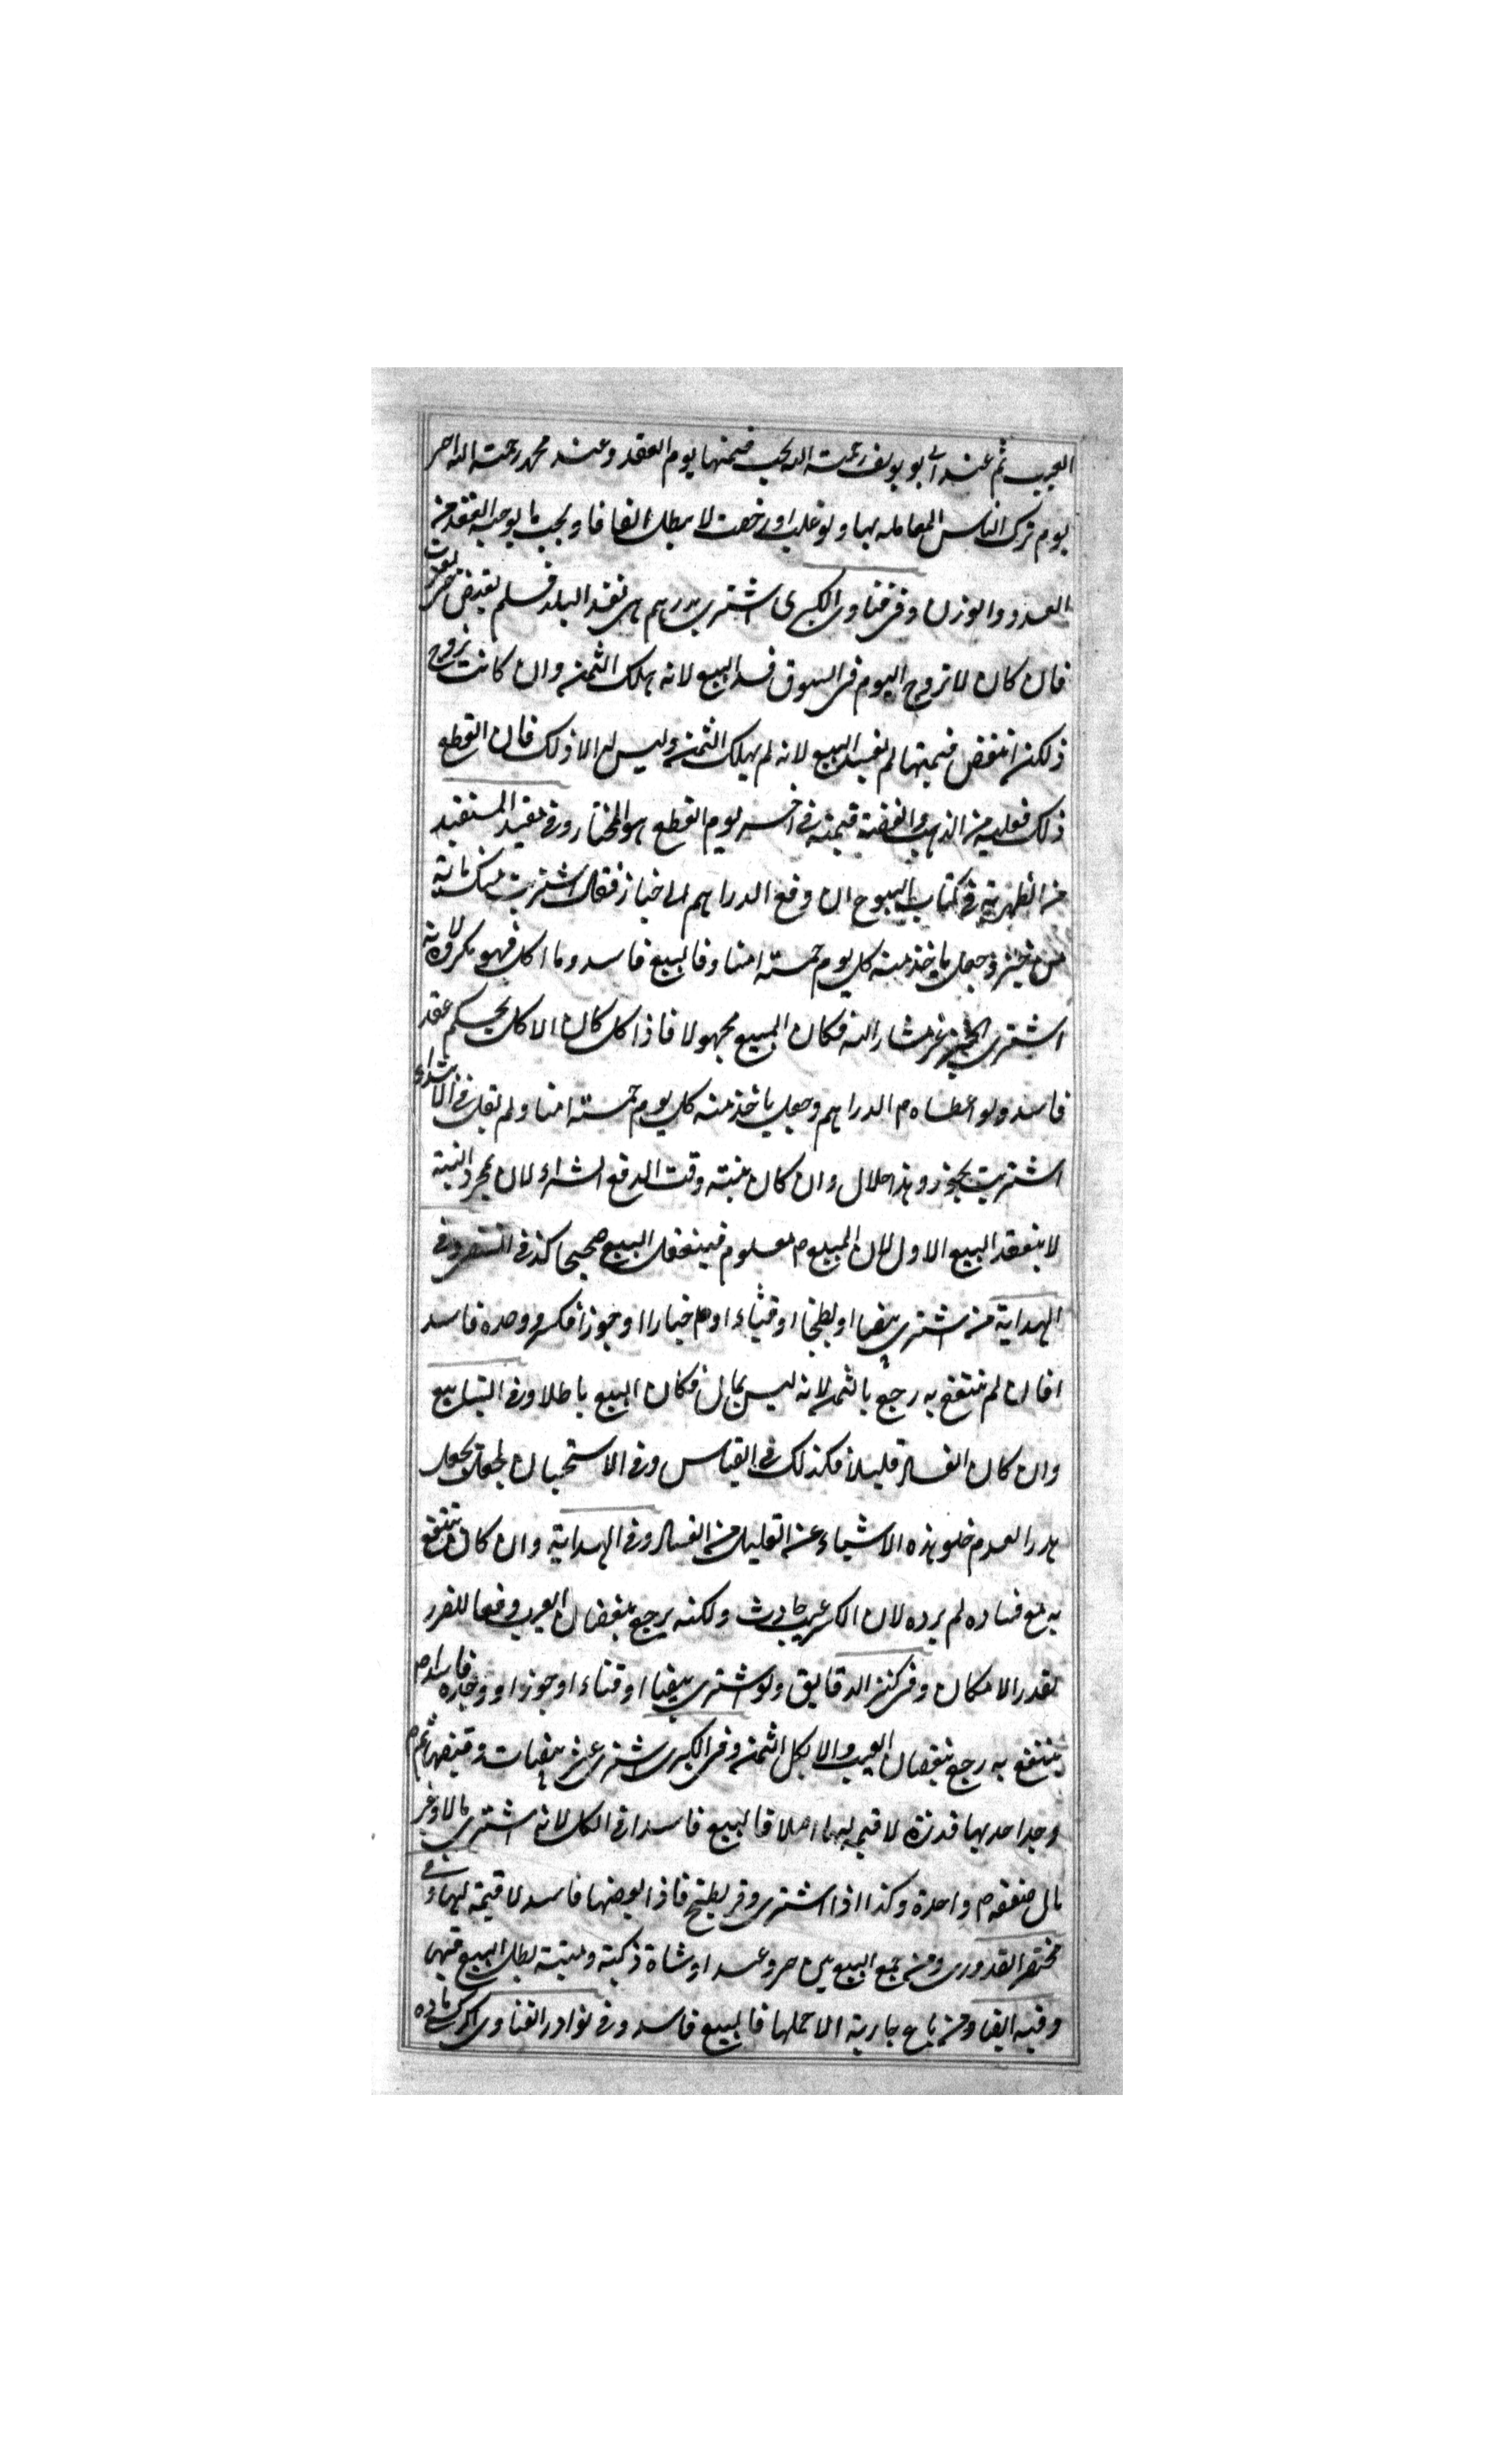 العيب ثم عند ابى يوسف رحمة الله يجب قيمتها يوم العقد وعند محمد رحمة الله اخر
يوم ترك الناس المعامله بها ولو غلت او رخصت لا يبطل اتفاقا ويجب ما يوجبه العقد من
العدد والوزن وفى فتاوى الكبرى اشترى بدرهم هى نقد البلد فلم يقبض حتى تغيرت
فان كان لا تروج اليوم فى السوق فسد البيع لانه هلك الثمن وان كانت تروج
ذلكن انتقض قيمتها لم يفسد البيع لانه لم يهلك الثمن وليس له الا ذلك فان انقطع
ذلك فعليه من الذهب والفضة قيمته فى اخر يوم انقطع هو المختار وفى مفيد المستفيد
من الظهرية فى كتاب البيوع ان دفع الدراهم الى خباز فقال اشتريت منك مائة
من خبز وجعل ياخذ منه كل يوم خمسته امنا وفالبيع فاسد وما اكل فهو مكروه لانه
اشترى الخبز غير مشار اليه فكان المبيع مجهولا فاذا كل كان الاكل بحكم عقد
فاسد ولو اعطاه الدراهم وجعل ياخذ منه كل يوم خمسته امنا ولم يقل فى الابتداء
اشتريت يجوز وهذا حلال وان كان نيته وقت الدفع الشراء لان بمجرد النية
لا ينعقد البيع الاول لان المبيع معلوم فينعقد البيع صحيحا كذا فى وفى
الهداية من اشترى بيضا او بطيخا او قثاء او خيارا او جوزا فكسره ووجده فاسد
افان لم ينتفع به رجع بالثمن لانه ليس بمال فكان البيع باطلا وفى الينابيع
وان كان الفساد قليلا فكذلك فى القياس وفى الاستحسان يجعل
هدرا لعدم خلو هذه الاشياء عن القليل من الفساد وفى الهداية وان كان ينتفع
به مع فساده لم يرده لان الكسر عيب حادث ولكنه يرجع بنقصان العيب دفعا للضرر
بقدر الامكان وفى كنز الدقايق ولو اشترى بيضا او قثاء او جوزا ووجده فاسدا
ينتفع به رجع بنقصان العيب والا بكل الثمن وفى الكبرى اشترى عشر بيضات وقبضها ثم
وجد احديها قذرة لا قيمه لها اصلا فالبيع فاسد فى الكل لانه اشترى مالا وغير
مال صفقه واحدة وكذا اذا اشترى وقر بطيخ فاذا بعضها فاسد لا قيمة لها وفى
مختصر القدورى ومن جمع البيع بين حر وعبد او شاة ذكية وميتة بطل البيع فيهما
وفيه ايضا ومن باع جارية الا حملها فالبيع فاسد وفى نوادر الفتاوى